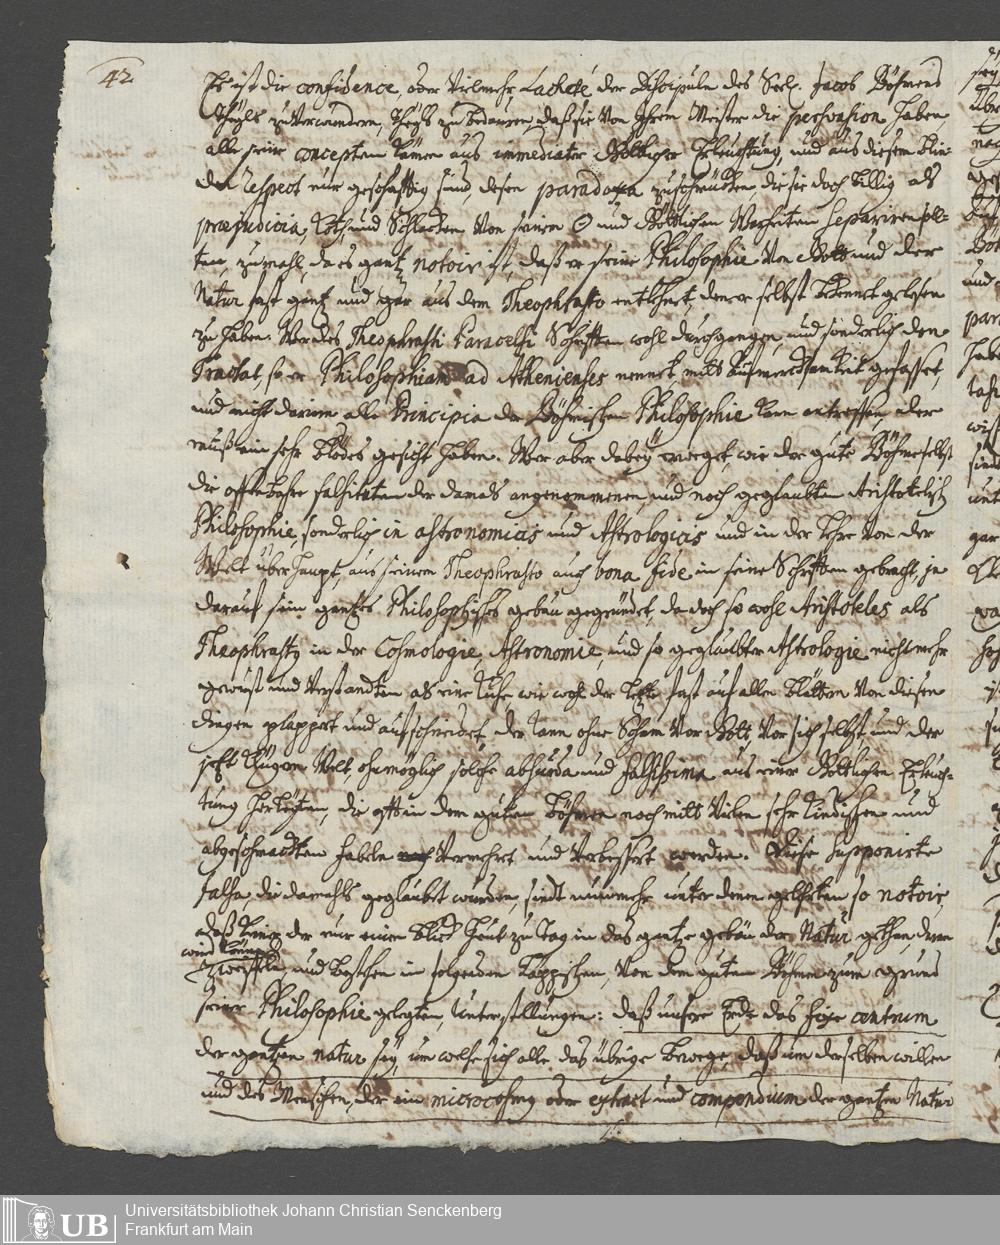 42
Es ist die confidence, oder vielmehr Lacheté der Discipuln des Seel. Jacob Böhmens
theyls zu verwundern, theyls zu bedauren, daß sie von Ihrem Meister die persvasion haben,
alle seine concepten kämen aus immediater Göttlicher Erleuchtung, und aus diesem blin-
den respect nur geschäfftig sind, desen paradoxa zu schmücken die sie doch billig als
præjudicia, Koth, und Schlacken von seinem ☉ und Göttlichen Warheiten separiren sol-
ten, zumahl, da es gantz notoir ist, daß er seine Philosophie von Gott und der
Natur fast gantz und gar aus dem Theophrasto entlehnet, den er selbst bekennet gelesen
zu haben. Wer des Theophrasti Paracelsi Schrifften wohl durchgangen, und sonderlich den
Tractat, so er Philosophiam ad Athenienses nennet, mitt Aufmercksamkeit gefasset,
und nicht darinn alle Principia der Böhmischen Philosophie kann antreffen, der
muß ein sehr blödes gesicht haben. Wer aber dabey erweget, wie der gute Böhme selbst
die offenbahre falsiteten der damals angenommenen, und noch geglaubten Aristotelisch
Philosophie, sonderlich in astronomicis und Astrologicis und in der Lehre von der
Welt überhaupt, aus seinem Theophrasto auch bona fide, in seine Schrifften gebracht, ja
darauf sein gantzes Philosophisches gebäu gegründet, da doch so wohl Aristoteles als
Theophrasty in der Cosmologie, Astronomie, und so geglaubter Astrologie nicht mehr
gewust und verstandten als eine Kuhe wie wohl der letzte fast auf allen blättern von diesen
dingen plappert und aufschneidet, der kann ohne Scham vor Gott, vor sich selbst und der
jetzt klügern Welt ohnmöglich solche absurda und falsissima aus einer Göttlichen Erleuch-
tung herleyten, die offt in dem guten Böhmen noch mitt vielen sehr kindischen und
abgeschmackten fabeln vermehret und verbessert werden. Diese supponirte
falsa, die damahls geglaubet wurden, sindt nunmehr unter denen gelehrten so notoir,
daß keiner der nur einen blick heut zu Tag in das gantze gebäu der Natur gethan, dran
wird können
zweiffeln, und bestehen in folgenden läppischen, von dem guten Böhmen zum grund
seiner Philosophie gelegten, Unterstellungen: daß unsere Erde das fixe centrum
der gantzen natur sey, um welche sich alle das übrige bewege, daß um derselben willen
und des Menschen, der ein microcosmy oder extract und compendium der gantzen Natur
Universitätsbibliothek Johann Christian Senckenberg
Frankfurt am Main
UB